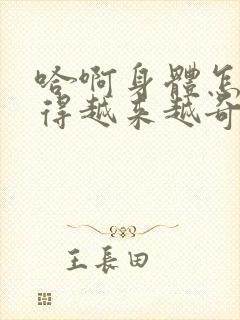 哈啊身體怎
得越来越奇
王長田